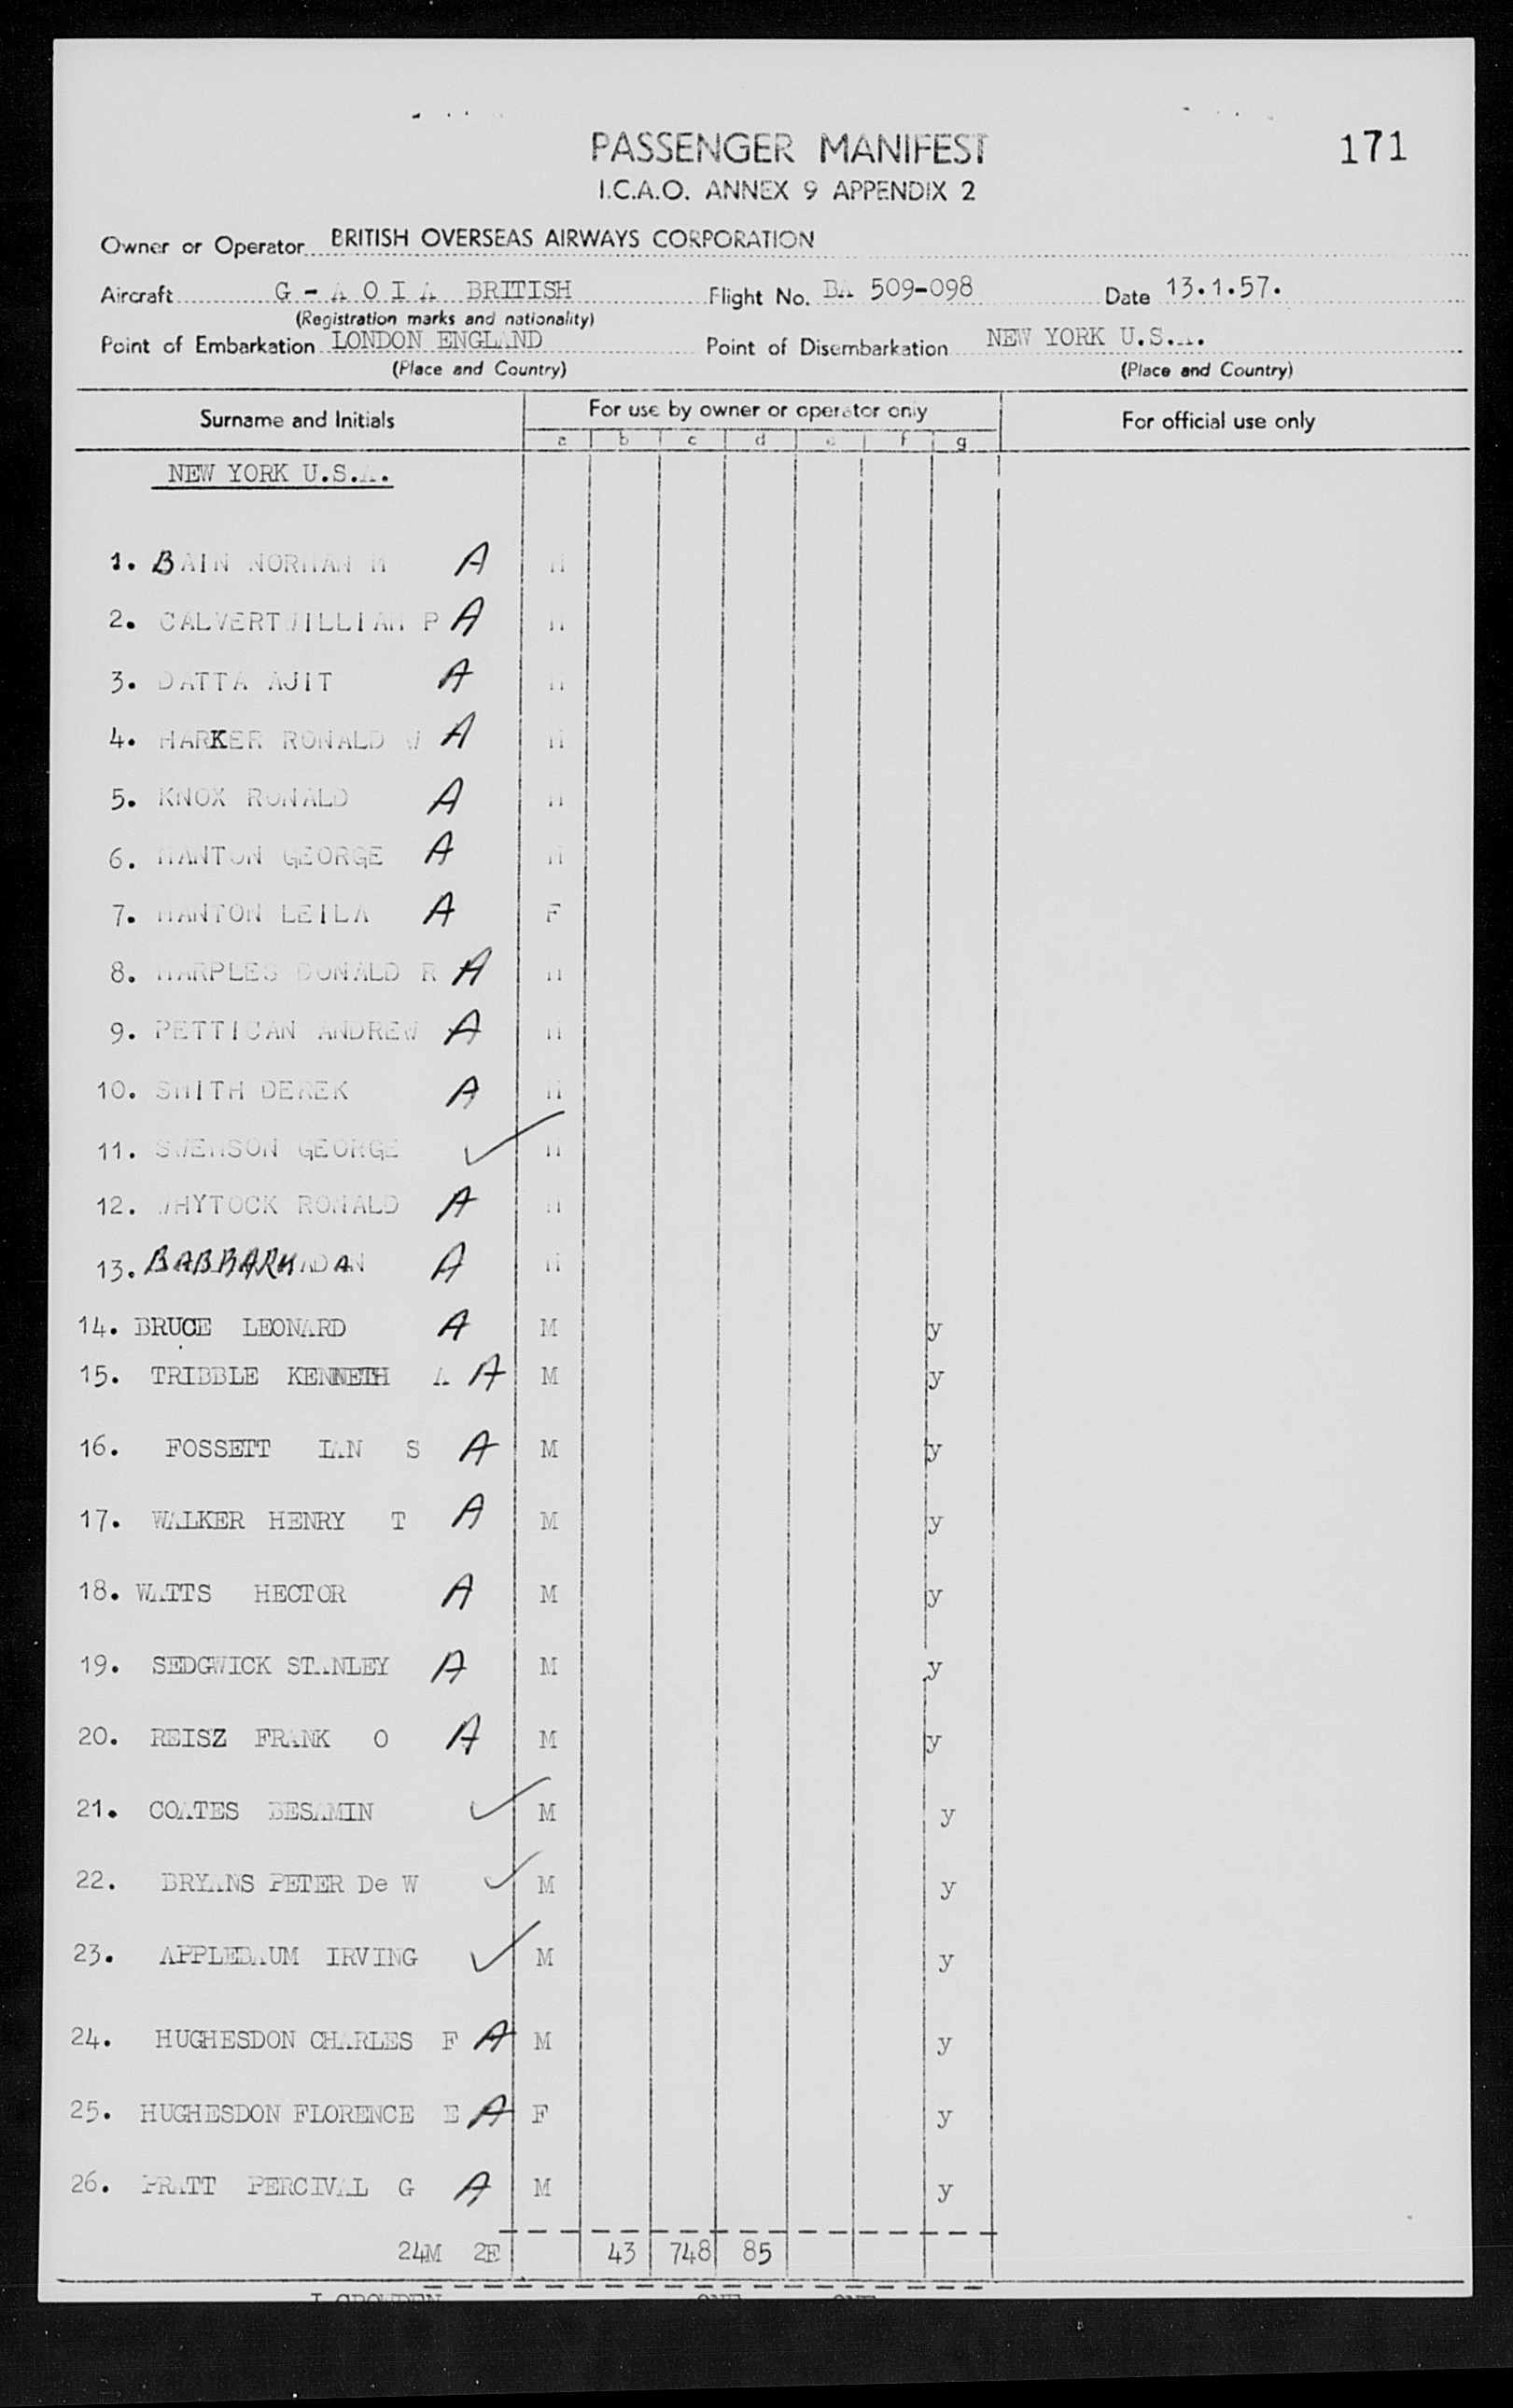 PASSENGER MANIFEST
171
I.C.A.O. ANNEX 9 APPENDIX 2
Owner or Operator BRITISH OVERSEAS AIRWAYS CORPORATION
Aircraft G - A O I A BRITISH Flight No. BA 509-098 Date 13.1.57.
(Registration marks and nationality)
Point of Embarkation LONDON ENGLAND Point of Disembarkation NEW YORK U.S.A.
(Place and Country) (Place and Country)
Surname and Initials For use by owner or operator only For official use only
a b c d e f g
NEW YORK U.S.A.
1. BAIN NORMAN M A M
2. CALVERT WILLIAM P A M
3. DATTA AJIT A M
4. HARKER RONALD W A M
5. KNOX RONALD A M
6. MANTON GEORGE A M
7. MANTON LEILA A F
8. MARPLES DONALD R A M
9. PETTICAN ANDREW A M
10. SMITH DEREK A M
11. SWENSON GEORGE ✓ M
12. WHYTOCK RONALD A M
13. BABBAR MADAN A M
14. BRUCE LEONARD A M y
15. TRIBBLE KENNETH A A M y
16. FOSSETT IAN S A M y
17. WALKER HENRY T A M y
18. WATTS HECTOR A M y
19. SEDGWICK STANLEY A M y
20. REISZ FRANK O A M y
21. COATES BESAMIN ✓ M y
22. BRYANS PETER De W ✓ M y
23. APPLEBAUM IRVING ✓ M y
24. HUGHESDON CHARLES F A M y
25. HUGHESDON FLORENCE E A F y
26. PRATT PERCIVAL G A M y
24M 2F 43 748 85